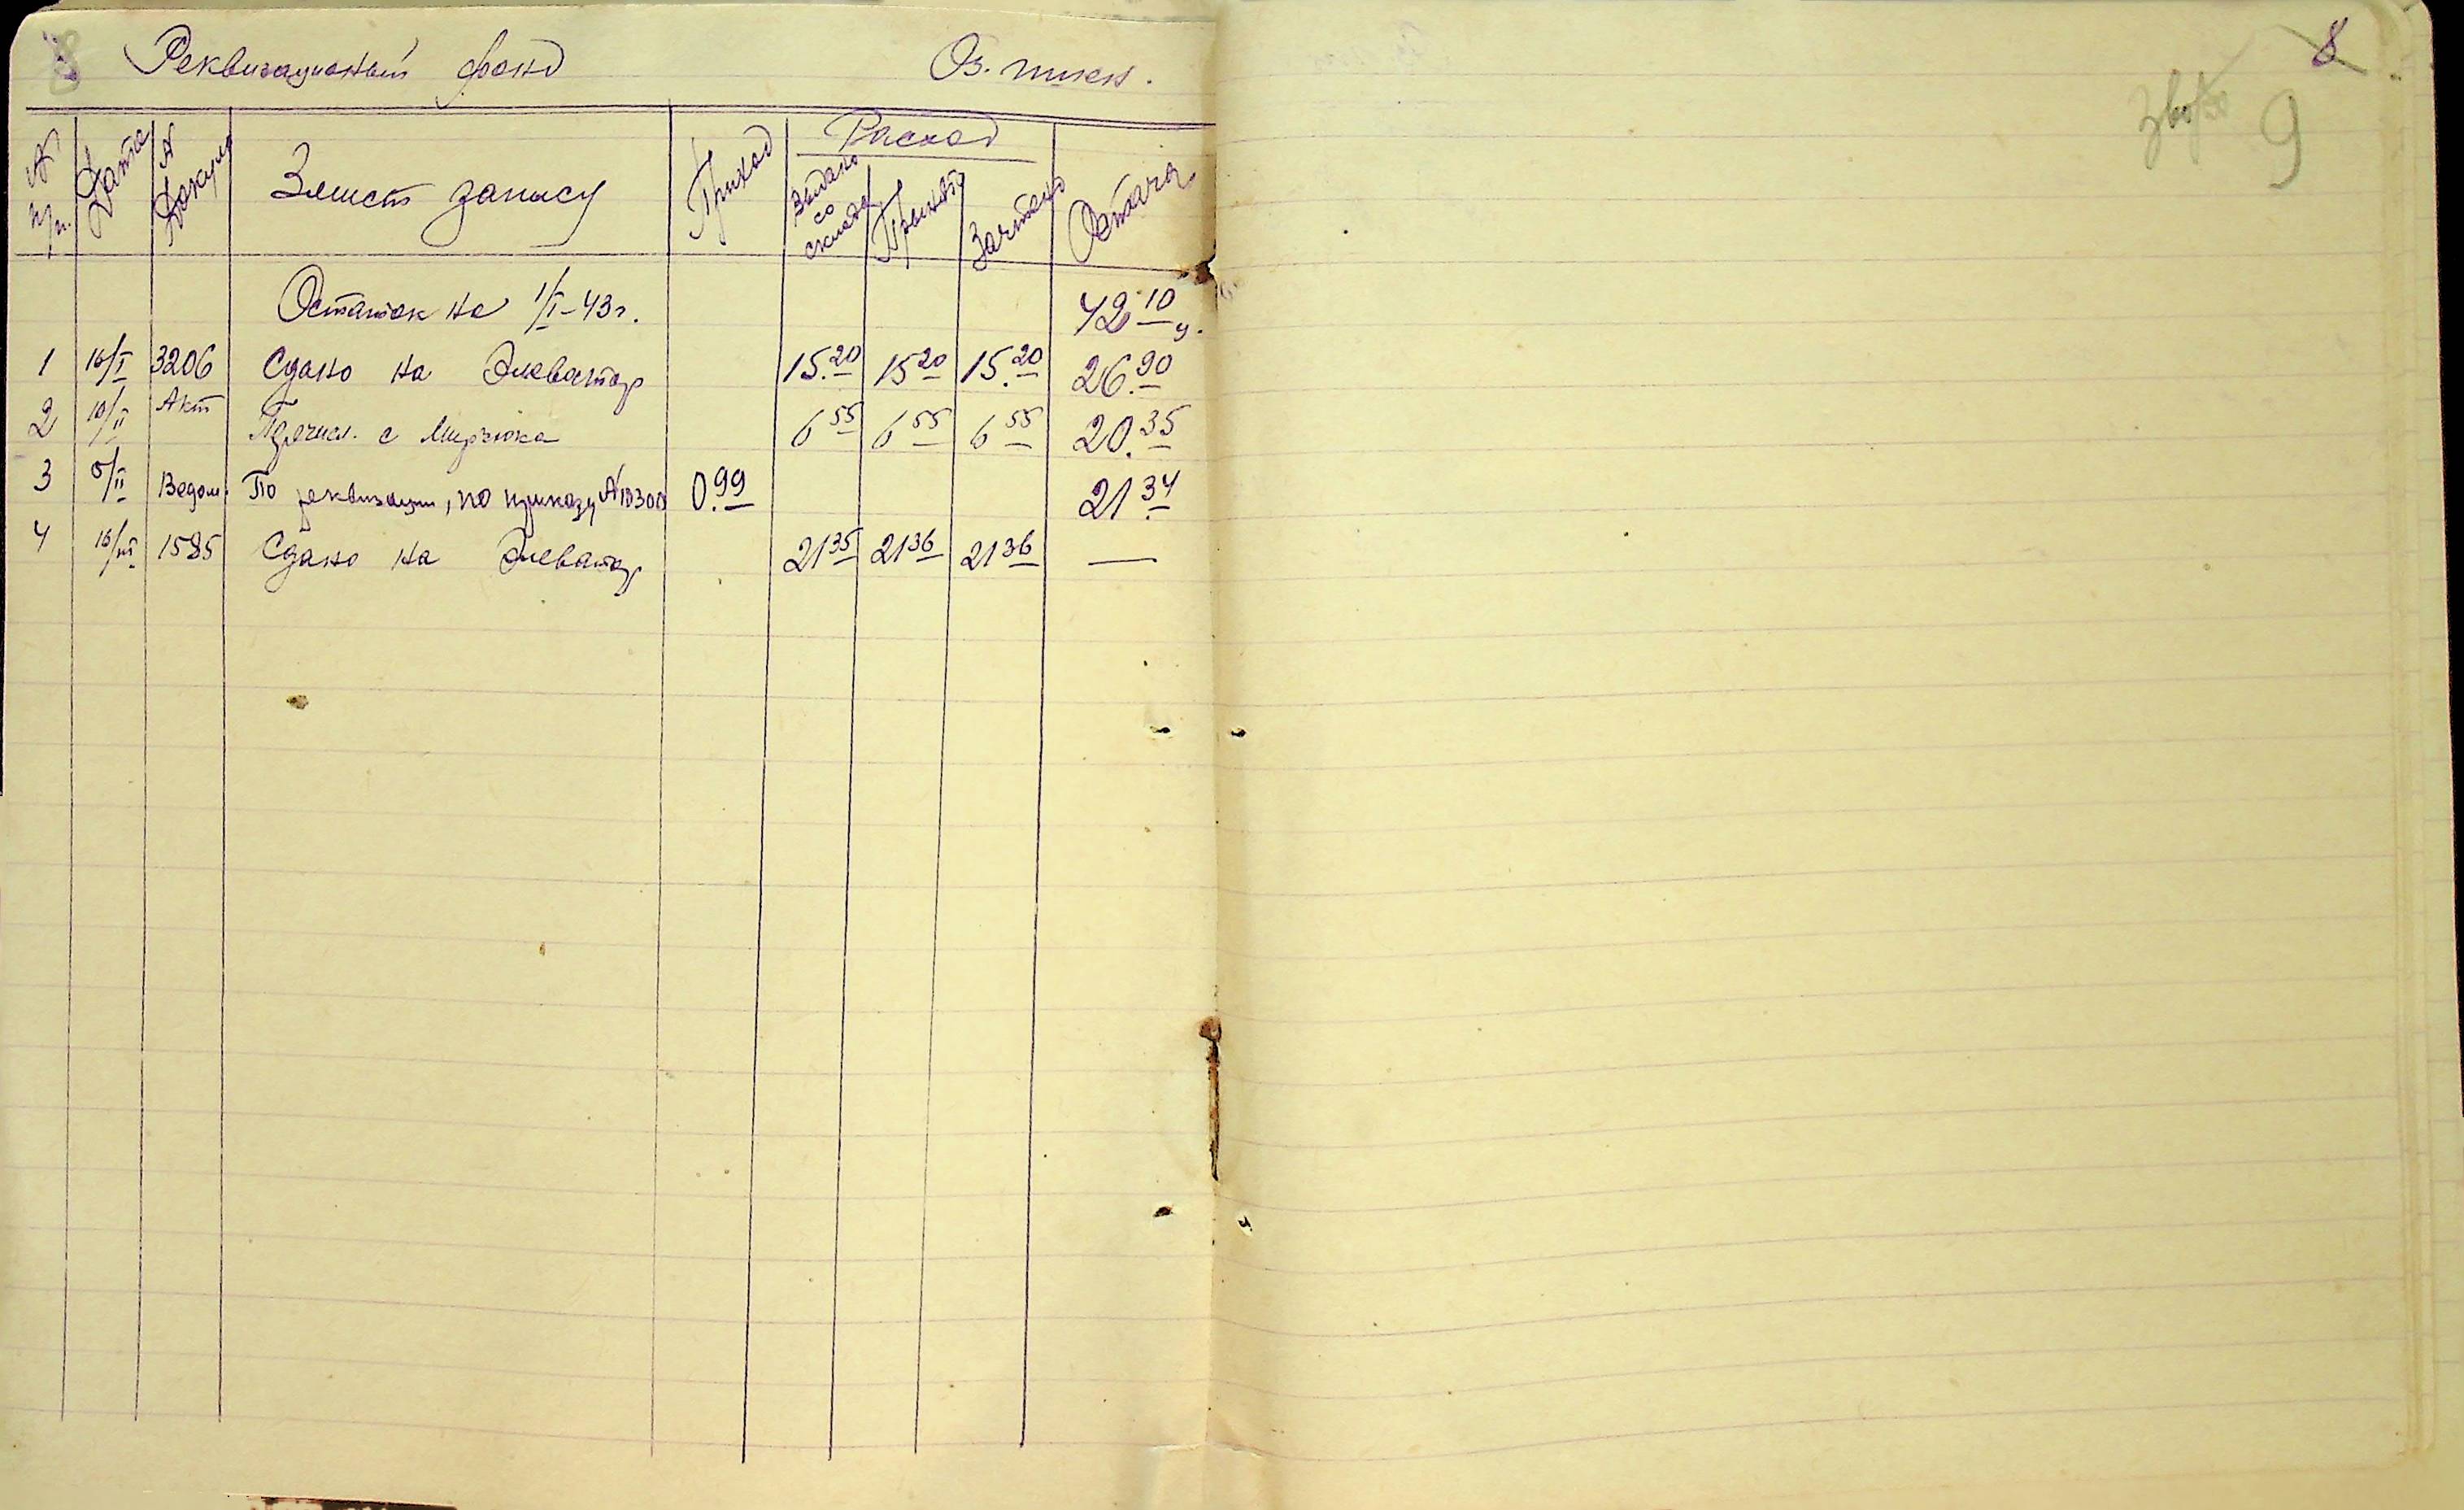 8 Реквизационый фонд Оз. пшен. 8
9
№ п/п. Дата № Докум Змист запису Приход Расход Остача
Выдано со склада Принято Зачтено
Остаток на 1/I-43г. 42.10 ц.
1 16/I 3206 Сдано на Элеватор 15.20 15 20 15.20 26.90
2 10/II Акт с 6 55 6 55 6 55 20.35
3 5/II Ведом. По реквизации, по приказу 0.99 21.34
4 16/III 1585 Сдано на Элеватор 21 35 21 36 21 36 —